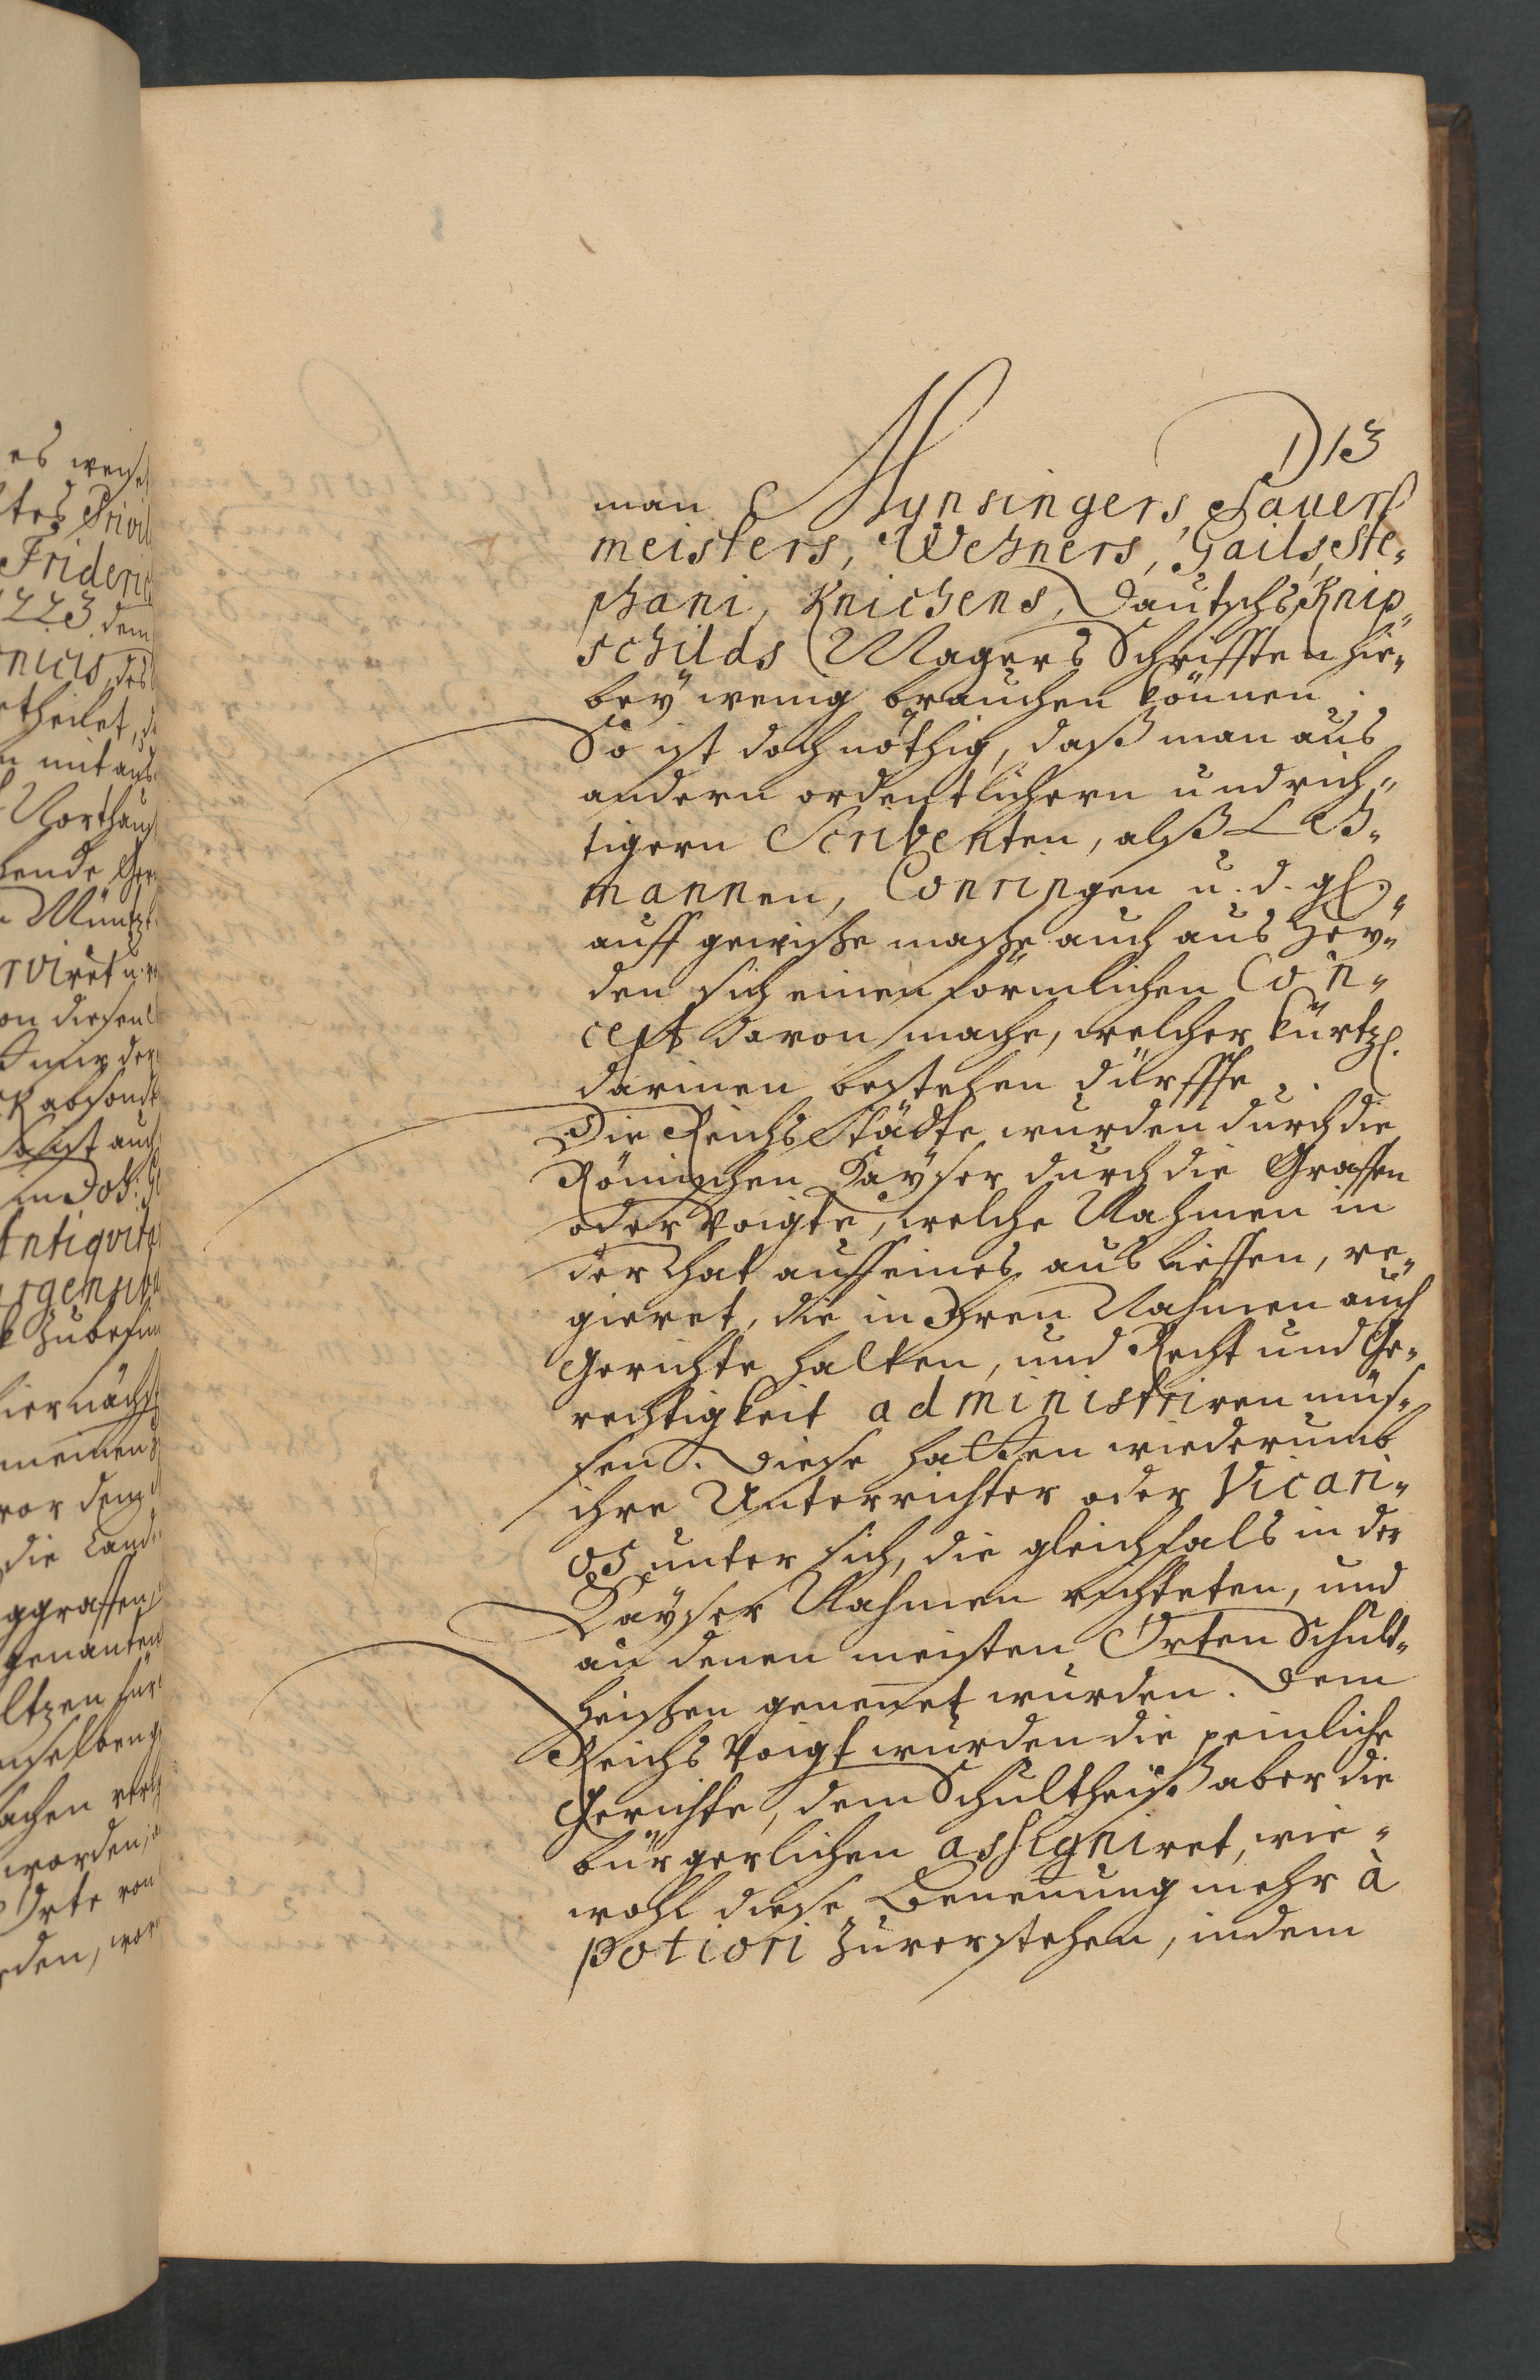 13
man Mynsingers, Sauer
meisters, Wehners, Gails, Ste-
phani, Knichens, Dautschs, Knip-
schilds Magers Schrifften hie-
bey wenig brauchen können.
So ist doch nöthig, daß man aus
andern ordentlichern und rich-
tigern Scribenten, alß Leh-
mannen, Conringen u. d. gl.
auff gewisse masse auch aus Hey-
den sich einen förmlichen Con-
cept davon mache, welcher kürtzl.
darinnen bestehen dürffte.
Die Reichs Städte wurden durch die
Römischen Käyser durch die Graffen
oder Voigte, welche Nahmen in
der That auff eines aus lieffen, re-
gieret, die in Ihren Nahmen auch
Gerichte halten, und Recht und Ge-
rechtigkeit administriren müs-
sen. Diese hatten wiederumb
ihre Unterrichter oder Vicari-
os unter sich, die gleichfals in der
Käyser Nahmen richteten, und
an denen meisten Orten Schult-
heissen genennet wurden. Dem
Reichs Voigt wurden die peinliche
Gerichte, dem Schultheiß aber die
bürgerlichen assigniret, wie-
wohl diese Benennung mehr à
potiori zuverstehen, indem